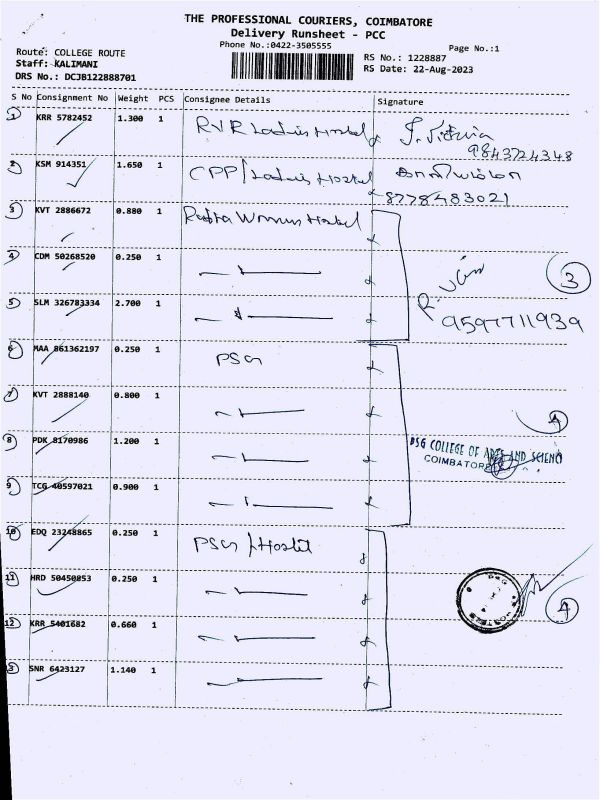 THE PROFESSIONAL COURIERS, COIMBATORE
Delivery Runsheet - PCC
Phone No.:0422-3505555
Page No.:1
Route: COLLEGE ROUTE
Staff: KALIMANI
DRS No.: DCJB122888701
RS No.: 1228887
RS Date: 22-Aug-2023
S No Consignment No Weight PCS Consignee Details Signature
1 KRR 5782452 1.300 1 RVR Ladies Hostel
9843724348
2 KSM 914351 1.650 1 CPP/Ladies Hostel
8778483021
3 KVT 2886672 0.880 1 Hostel
4 CDM 50268520 0.250 1
3
5 SLM 326783334 2.700 1
9597711939
6 MAA 861362197 0.250 1 PSG
7 KVT 2888140 0.800 1
4
8 PDK 8170986 1.200 1
PSG COLLEGE OF ARTS AND SCIENCE
COIMBATORE
9 TCG 40597021 0.900 1
10 EDQ 23248865 0.250 1 PSG/Hostel
11 HRD 50450853 0.250 1
4
12 KRR 5401682 0.660 1
13 SNR 6423127 1.140 1